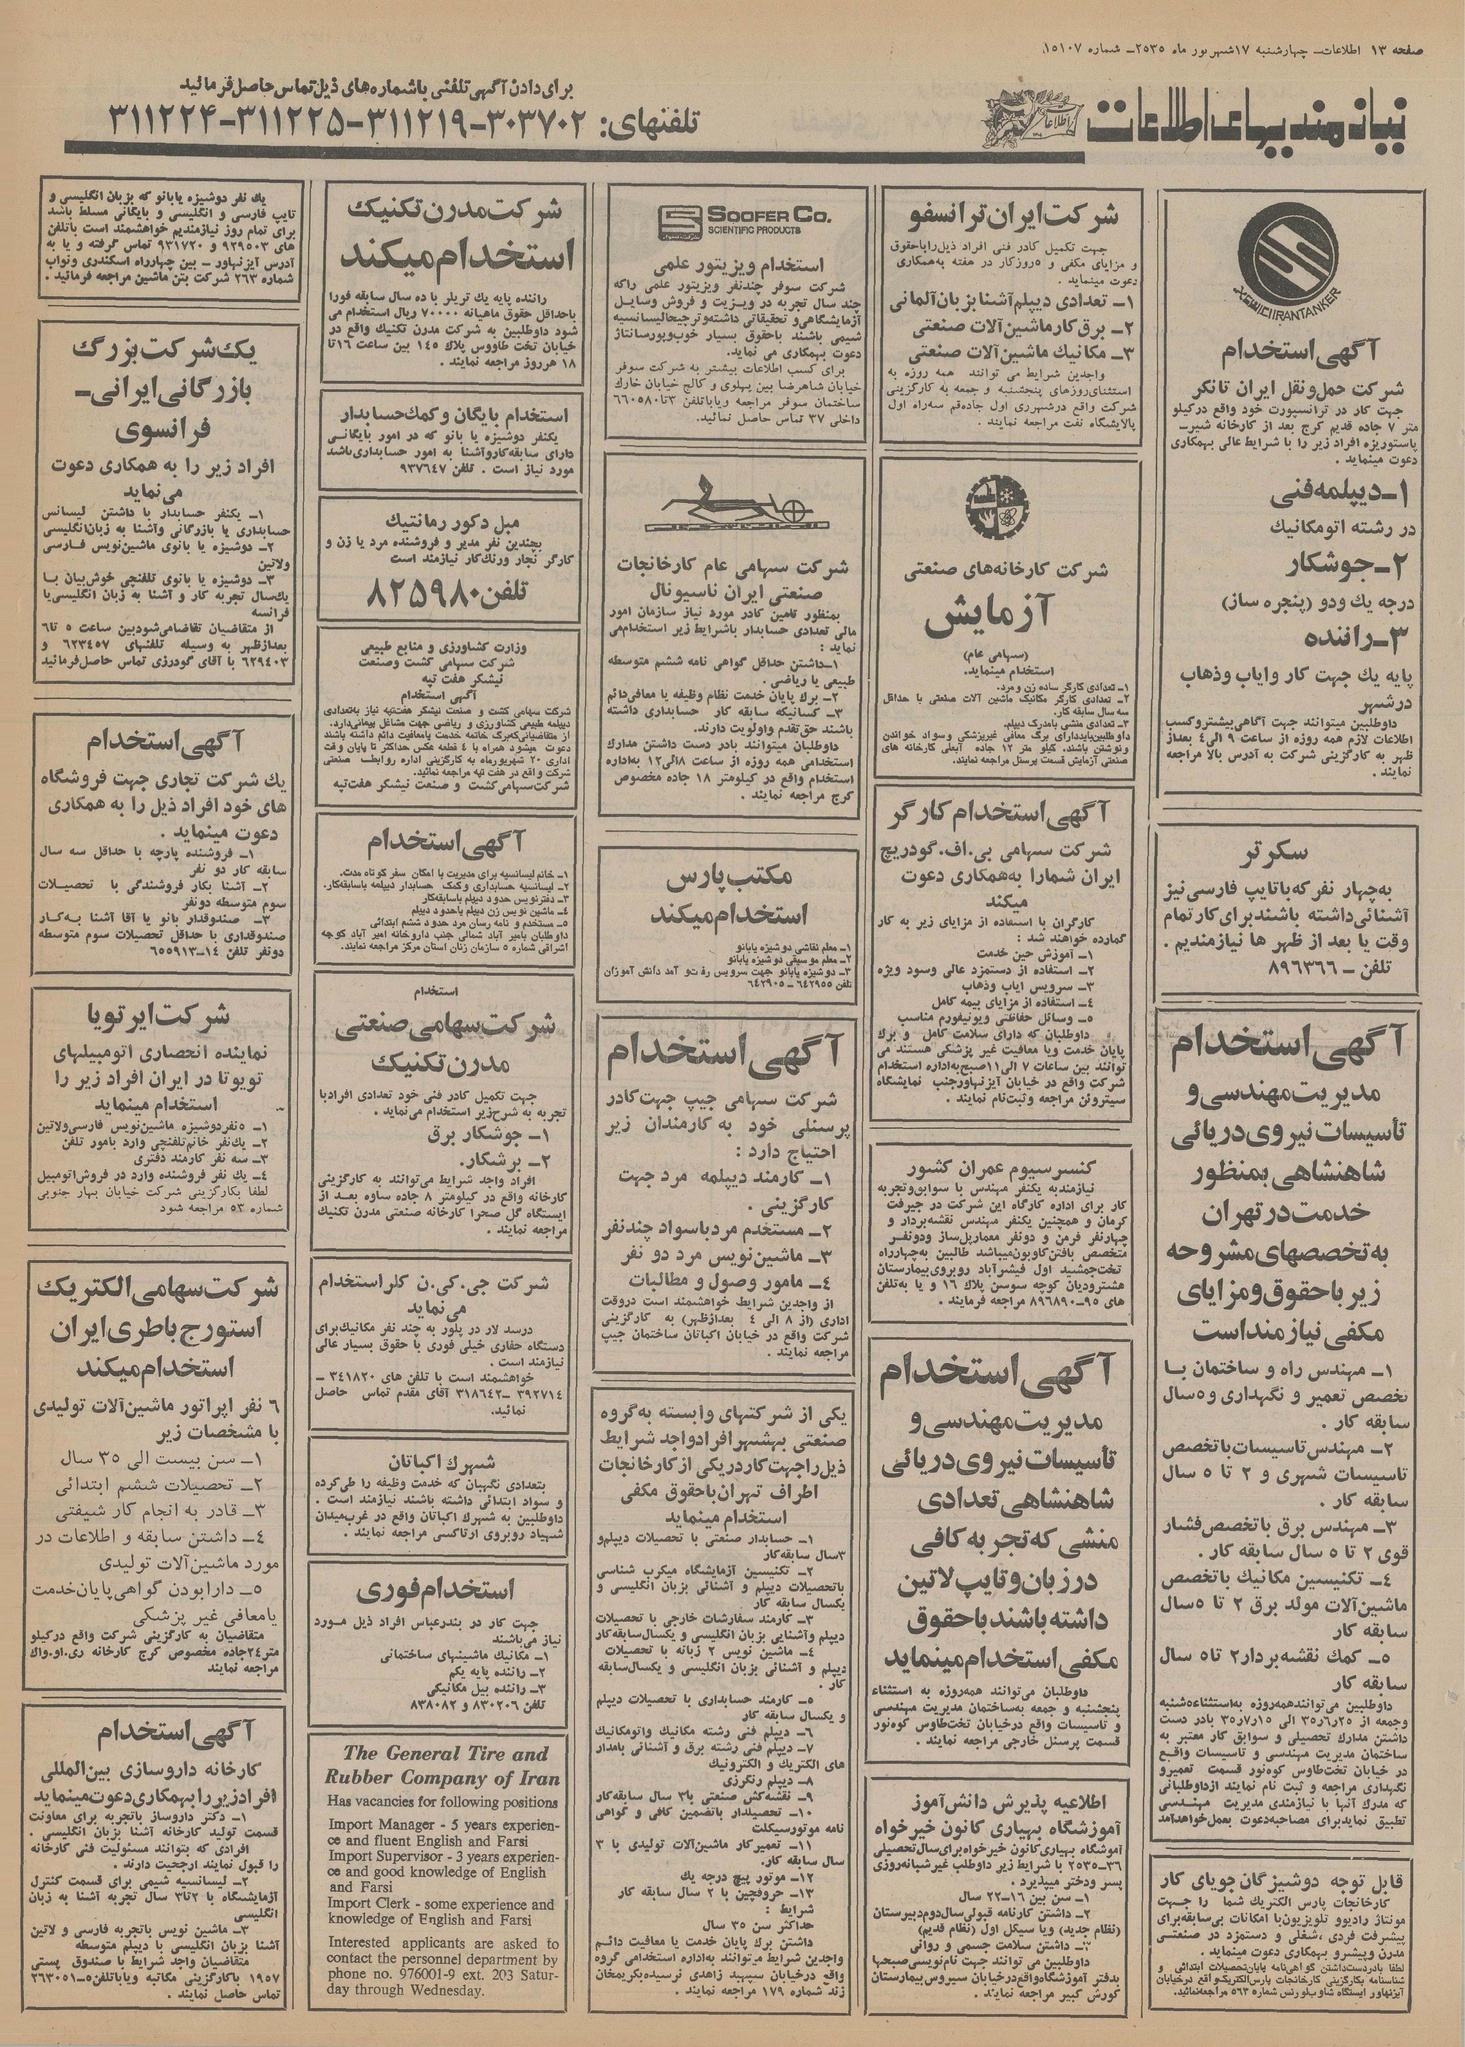 صفحه ۱۳ اطلاعات_ چهارشنبه ۱۷ شهریور ماه ۲۵۳۵_ شماره ۱۵۱۰۷
نیازمندیهای اطلاعات
برای دادن آگهی تلفنی با شماره‌های ذیل تماس حاصل فرمائید
تلفنهای: ۳۰۳۷۰۲-۳۱۱۲۱۹-۳۱۱۲۲۵-۳۱۱۲۲۴
XEWICIIRANTANKER
آگهی استخدام
شرکت حمل و نقل ایران تانکر
جهت کار در ترانسپورت خود واقع در کیلو
متر ۷ جاده قدیم کرج بعد از کارخانه شیر_
پاستوریزه افراد زیر را با شرایط عالی بهمکاری
دعوت مینماید .
۱_دیپلمه فنی
در رشته اتومکانیک
۲_جوشکار
درجه یک ودو (پنجره ساز)
۳_راننده
پایه یک جهت کار وایاب وذهاب
در شهر
داوطلبین میتوانند جهت آگاهی بیشتر وکسب
اطلاعات لازم همه روزه از ساعت ۹ الی ۴ بعداز
ظهر به کارگزینی شرکت به آدرس بالا مراجعه
نمایند .
سکرتر
به‌چهار نفر که با تایپ فارسی نیز
آشنائی داشته باشند برای کار تمام
وقت یا بعد از ظهر ها نیازمندیم .
تلفن _ ۸۹۶۳۶۶
آگهی استخدام
مدیریت مهندسی و
تأسیسات نیروی دریائی
شاهنشاهی بمنظور
خدمت در تهران
به تخصصهای مشروحه
زیر با حقوق و مزایای
مکفی نیازمند است
۱_ مهندس راه و ساختمان با
تخصص تعمیر و نگهداری و ۵سال
سابقه کار .
۲_ مهندس تاسیسات با تخصص
تاسیسات شهری و ۲ تا ۵ سال
سابقه کار .
۳_ مهندس برق با تخصص فشار
قوی ۲ تا ۵ سال سابقه کار .
۴_ تکنیسین مکانیک با تخصص
ماشین‌آلات مولد برق ۲ تا ۵سال
سابقه کار
۵_ کمک نقشه‌بردار ۲ تا ۵ سال
سابقه کار
داوطلبین میتوانند همه‌روزه به استثناء ۵شنبه
وجمعه از ۳۵ر۶ر۲۵ الی ۳۵ر۷ر۱۵ بادر دست
داشتن مدارک تحصیلی و سوابق کار معتبر به
ساختمان مدیریت مهندسی و تاسیسات واقع
در خیابان تخت‌طاوس کوه‌نور قسمت تعمیرو
نگهداری مراجعه و ثبت نام نمایند ازداوطلبانی
که مدرک آنها با نیازمندی مدیریت مهندسی
تطبیق نماید برای مصاحبه دعوت بعمل خواهد آمد
قابل توجه دوشیزگان جویای کار
کارخانجات پارس الکتریک شما را جهت
مونتاژ رادیو و تلویزیون با امکانات بی‌سابقه برای
پیشرفت فردی، شغلی و دستمزد در صنعتی
مدرن وپیشرو بهمکاری دعوت مینماید .
لطفا با در دست داشتن گواهی‌نامه پایان تحصیلات ابتدائی و
شناسنامه بکارگزینی کارخانجات پارس الکتریک واقع در خیابان
آیزنهاور ایستگاه شاوب لورنس شماره ۵۶۳ مراجعه نمائید.
شرکت ایران ترانسفو
جهت تکمیل کادر فنی افراد ذیل را با حقوق
و مزایای مکفی و ۵ روز کار در هفته به همکاری
دعوت مینماید .
۱_ تعدادی دیپلم آشنا بزبان آلمانی
۲_ برق کار ماشین آلات صنعتی
۳_ مکانیک ماشین آلات صنعتی
واجدین شرایط می توانند همه روزه به
استثنای روزهای پنجشنبه و جمعه به کارگزینی
شرکت واقع درشهرری اول جاده قم سه‌راه اول
پالایشگاه نفت مراجعه نمایند .
شرکت کارخانه‌های صنعتی
آزمایش
(سهامی عام)
استخدام مینماید.
۱_ تعدادی کارگر ساده زن و مرد.
۲_ تعدادی کارگر مکانیک ماشین آلات صنعتی با حداقل
سه سال سابقه کار.
۳_ تعدادی منشی بامدرک دیپلم.
داوطلبین باید دارای برگ معافی غیرپزشکی و سواد خواندن
ونوشتن باشند. کیلو متر ۱۲ جاده آبعلی کارخانه های
صنعتی آزمایش قسمت پرسنل مراجعه نمایند.
آگهی استخدام کارگر
شرکت سهامی بی.اف.گودریچ
ایران شمارا به همکاری دعوت
میکند
کارگران با استفاده از مزایای زیر به کار
گمارده خواهند شد :
۱_ آموزش حین خدمت
۲_ استفاده از دستمزد عالی وسود ویژه
۳_ سرویس ایاب وذهاب
۴_ استفاده از مزایای بیمه کامل
۵_ وسائل حفاظتی ویونیفورم مناسب
داوطلبان که دارای سلامت کامل و برگ
پایان خدمت ویا معافیت غیر پزشکی هستند می
توانند بین ساعات ۷ الی ۱۱صبح به‌اداره استخدام
شرکت واقع در خیابان آیزنهاور جنب نمایشگاه
سیتروئن مراجعه وثبت نام نمایند .
کنسرسیوم عمران کشور
نیازمند به یکنفر مهندس با سوابق وتجربه
کار برای اداره کارگاه این شرکت در جیرفت
کرمان و همچنین یکنفر مهندس نقشه‌بردار و
چهارنفر فرمن و دونفر معمار پل‌ساز ودونفر
متخصص بافتن گاوبون میباشد طالبین به‌چهارراه
تخت‌جمشید اول فیشرآباد روبروی بیمارستان
هشترودیان کوچه سوسن پلاک ۱۶ و یا به‌تلفن
های ۹۵_۸۹۶۸۹۰ مراجعه فرمایند .
آگهی استخدام
مدیریت مهندسی و
تأسیسات نیروی دریائی
شاهنشاهی تعدادی
منشی که تجربه کافی
در زبان و تایپ لاتین
داشته باشند با حقوق
مکفی استخدام مینماید
داوطلبان می‌توانند همه‌روزه به استثناء
پنجشنبه و جمعه به‌ساختمان مدیریت مهندسی
و تاسیسات واقع درخیابان تخت‌طاوس کوه‌نور
قسمت پرسنل خارجی مراجعه نمایند .
اطلاعیه پذیرش دانش‌آموز
آموزشگاه بهیاری کانون خیرخواه
آموشگاه بهیاری کانون خیرخواه برای سال تحصیلی
۳۶_۲۵۳۵ با شرایط زیر داوطلب غیرشبانه‌روزی
پسر ودختر میپذیرد .
۱_ سن بین ۱۶_۲۲ سال
۲_ داشتن کارنامه قبولی سال دوم دبیرستان
(نظام جدید) ویا سیکل اول (نظام قدیم)
۳_ داشتن سلامت جسمی و روانی
داوطلبین می توانند جهت نام‌نویسی صبحها
بدفتر آموزشگاه واقع در خیابان سیروس بیمارستان
کورش کبیر مراجعه نمایند .
SOOFER CO.
SCIENTIFIC PRODUCTS
استخدام ویزیتور علمی
شرکت سوفر چندنفر ویزیتور علمی راکه
چند سال تجربه در ویزیت و فروش وسایل
آزمایشگاهی و تحقیقاتی داشته وترجیحالیسانسیه
شیمی باشند باحقوق بسیار خوب وپورسانتاژ
دعوت بهمکاری می نماید.
برای کسب اطلاعات بیشتر به شرکت سوفر
خیابان شاهرضا بین پهلوی و کالج خیابان خارک
ساختمان سوفر مراجعه ویا باتلفن ۳تا۶۶۰۵۸۰
داخلی ۳۷ تماس حاصل نمائید.
شرکت سهامی عام کارخانجات
صنعتی ایران ناسیونال
بمنظور تامین کادر مورد نیاز سازمان امور
مالی تعدادی حسابدار باشرایط زیر استخدام می
نماید :
۱_داشتن حداقل گواهی نامه ششم متوسطه
طبیعی یا ریاضی .
۲_ برگ پایان خدمت نظام وظیفه یا معافی دائم
۳_ کسانیکه سابقه کار حسابداری داشته
باشند حق تقدم واولویت دارند.
داوطلبان میتوانند بادر دست داشتن مدارک
استخدامی همه روزه از ساعت ۸الی۱۲ به‌اداره
استخدام واقع در کیلومتر ۱۸ جاده مخصوص
کرج مراجعه نمایند .
مکتب پارس
استخدام میکند
۱_ معلم نقاشی دوشیزه یابانو
۲_ معلم موسیقی دوشیزه یابانو
۳_ دوشیزه یابانو جهت سرویس رفت و آمد دانش آموزان
تلفن ۶۴۲۹۵۵ _ ۶۴۲۹۰۵
آگهی استخدام
شرکت سهامی جیپ جهت کادر
پرسنلی خود به کارمندان زیر
احتیاج دارد :
۱_ کارمند دیپلمه مرد جهت
کارگزینی .
۲_ مستخدم مرد باسواد چند نفر
۳_ ماشین نویس مرد دو نفر
۴_ مامور وصول و مطالبات
از واجدین شرایط خواهشمند است دروقت
اداری (از ۸ الی ۴ بعدازظهر) به کارگزینی
شرکت واقع در خیابان اکباتان ساختمان جیپ
مراجعه نمایند .
یکی از شرکتهای وابسته به گروه
صنعتی بهشهر افراد واجد شرایط
ذیل را جهت کار در یکی از کارخانجات
اطراف تهران با حقوق مکفی
استخدام مینماید
۱_ حسابدار صنعتی با تحصیلات دیپلم و
۳سال سابقه کار
۲_ تکنیسین آزمایشگاه میکرب شناسی
باتحصیلات دیپلم و آشنائی بزبان انگلیسی و
یکسال سابقه کار
۳_ کارمند سفارشات خارجی با تحصیلات
دیپلم وآشنایی بزبان انگلیسی و یکسال سابقه‌کار
۴_ ماشین نویس ۲ زبانه با تحصیلات
دیپلم و آشنائی بزبان انگلیسی و یکسال سابقه
کار .
۵_ کارمند حسابداری با تحصیلات دیپلم
و یکسال سابقه کار
۶_ دیپلم فنی رشته مکانیک واتومکانیک
۷_ دیپلم فنی رشته برق و آشنائی بامدار
های الکتریک و الکترونیک
۸_ دیپلم رنگرزی
۹_ نقشه‌کش صنعتی با۳ سال سابقه‌کار
۱۰_ تحصیلدار باتضمین کافی و گواهی
نامه موتورسیکلت
۱۱_ تعمیرکار ماشین‌آلات تولیدی با ۳
سال سابقه کار.
۱۲_ موتور پیچ درجه یک
۱۳_ حروفچین با ۲ سال سابقه کار
شرایط :
حداکثر سن ۳۵ سال
داشتن برگ پایان خدمت یا معافیت دائم
واجدین شرایط میتوانند به‌اداره استخدامی گروه
واقع درخیابان سپهبد زاهدی نرسیده بکریمخان
زند شماره ۱۷۹ مراجعه نمایند .
شرکت مدرن تکنیک
استخدام میکند
راننده پایه یک تریلر با ده سال سابقه فورا
باحداقل حقوق ماهیانه ۷۰۰۰۰ ریال استخدام می
شود داوطلبین به شرکت مدرن تکنیک واقع در
خیابان تخت طاووس پلاک ۱۴۵ بین ساعت ۱۶تا
۱۸ هرروز مراجعه نمایند .
استخدام بایگان و کمک حسابدار
یکنفر دوشیزه یا بانو که در امور بایگانی
دارای سابقه کار و آشنا به امور حسابداری باشد
مورد نیاز است . تلفن ۹۳۷۶۴۷
مبل دکور رمانتیک
بچندین نفر مدیر و فروشنده مرد یا زن و
کارگر نجار ورنگ کار نیازمند است
تلفن ۸۲۵۹۸۰
وزارت کشاورزی و منابع طبیعی
شرکت سهامی کشت وصنعت
نیشکر هفت تپه
آگهی استخدام
شرکت سهامی کشت و صنعت نیشکر هفت‌تپه نیاز به‌تعدادی
دیپلمه طبیعی کشاورزی و ریاضی جهت مشاغل پیمانی دارد.
از متقاضیانی که برگ خاتمه خدمت یا معافیت دائم داشته باشند
دعوت میشود همراه با ۴ قطعه عکس حداکثر تا پایان وقت
اداری ۲۰ شهریورماه به کارگزینی اداره روابط صنعتی
شرکت واقع در هفت تپه مراجعه نمائید.
شرکت سهامی کشت و صنعت نیشکر هفت‌تپه
آگهی استخدام
۱_ خانم لیسانسیه برای مدیریت با امکان سفر کوتاه مدت.
۲_ لیسانسیه حسابداری و کمک حسابدار دیپلمه باسابقه‌کار.
۳_ دفترنویس حدود دیپلم باسابقه کار
۴_ ماشین نویس زن دیپلم یاحدود دیپلم
۵_ مستخدم و نامه رسان مرد حدود ششم ابتدائی
داوطلبان بامیر آباد شمالی جنب داروخانه امیر آباد کوچه
اشراقی شماره ۵ سازمان زنان استان مرکز مراجعه نمایند.
استخدام
شرکت سهامی صنعتی
مدرن تکنیک
جهت تکمیل کادر فنی خود تعدادی افراد با
تجربه به شرح زیر استخدام می نماید .
۱_ جوشکار برق
۲_ برشکار.
افراد واجد شرایط می‌توانند به کارگزینی
کارخانه واقع در کیلومتر ۸ جاده ساوه بعد از
ایستگاه گل صحرا کارخانه صنعتی مدرن تکنیک
مراجعه نمایند .
شرکت جی.کی.ن کلر استخدام
می نماید
درسد لار در پلور به چند نفر مکانیک برای
دستگاه حفاری خیلی فوری با حقوق بسیار عالی
نیازمند است .
خواهشمند است با تلفن های ۳۴۱۸۲۰ _
۳۹۲۷۱۴ _۳۱۸۶۴۲ آقای مقدم تماس حاصل
نمائید.
شهرک اکباتان
بتعدادی نگهبان که خدمت وظیفه را طی‌کرده
و سواد ابتدائی داشته باشند نیازمند است .
داوطلبین به شهرک اکباتان واقع در غرب میدان
شهیاد روبروی ارتاکسی مراجعه نمایند .
استخدام فوری
جهت کار در بندرعباس افراد ذیل مورد
نیاز می‌باشند
۱_ مکانیک ماشینهای ساختمانی
۲_ راننده پایه یکم
۳_ راننده بیل مکانیکی
تلفن ۸۳۰۲۰۶ و ۸۳۸۰۸۲
The General Tire and
Rubber Company of Iran
Has vacancies for following positions
Import Manager - 5 years experien-
ce and fluent English and Farsi
Import Supervisor - 3 years experien-
ce and good knowledge of English
and Farsi
Import Clerk - some experience and
knowledge of English and Farsi
Interested applicants are asked to
contact the personnel department by
phone no. 976001-9 ext. 203 Satur-
day through Wednesday.
یک نفر دوشیزه یابانو که بزبان انگلیسی و
تایپ فارسی و انگلیسی و بایگانی مسلط باشد
برای تمام روز نیازمندیم خواهشمند است باتلفن
های ۹۲۹۵۰۳ و ۹۳۱۷۲۰ تماس گرفته و یا به
آدرس آیزنهاور _ بین چهارراه اسکندری ونواب
شماره ۲۶۳ شرکت بتن ماشین مراجعه فرمائید .
یک شرکت بزرگ
بازرگانی ایرانی_
فرانسوی
افراد زیر را به همکاری دعوت
می‌نماید
۱_ یکنفر حسابدار با داشتن لیسانس
حسابداری یا بازرگانی وآشنا به زبان‌انگلیسی
۲_ دوشیزه یا بانوی ماشین‌نویس فارسی
ولاتین
۳_ دوشیزه یا بانوی تلفنچی خوش‌بیان با
یک‌سال تجربه کار و آشنا به زبان انگلیسی یا
فرانسه
از متقاضیان تقاضا می‌شود بین ساعت ۵ تا ۶
بعدازظهر به وسیله تلفنهای ۶۲۳۴۵۷ و
۶۲۹۴۰۳ با آقای گودرزی تماس حاصل فرمائید
آگهی استخدام
یک شرکت تجاری جهت فروشگاه
های خود افراد ذیل را به همکاری
دعوت مینماید .
۱_ فروشنده پارچه با حداقل سه سال
سابقه کار دو نفر
۲_ آشنا بکار فروشندگی با تحصیلات
سوم متوسطه دونفر
۳_ صندوقدار بانو یا آقا آشنا به‌کار
صندوقداری با حداقل تحصیلات سوم متوسطه
دونفر تلفن ۱۴_۶۵۵۹۱۳
شرکت ایرتویا
نماینده انحصاری اتومبیلهای
تویوتا در ایران افراد زیر را
استخدام مینماید
۱_ ۵نفردوشیزه ماشین‌نویس فارسی ولاتین
۲_ یک نفر خانم تلفنچی وارد بامور تلفن
۳_ سه نفر کارمند دفتری
۴_ یک نفر فروشنده وارد در فروش اتومبیل
لطفا بکارگزینی شرکت خیابان بهار جنوبی
شماره ۵۳ مراجعه شود
شرکت سهامی الکتریک
استورج باطری ایران
استخدام میکند
۶ نفر اپراتور ماشین‌آلات تولیدی
با مشخصات زیر
۱_ سن بیست الی ۳۵ سال
۲_ تحصیلات ششم ابتدائی
۳_ قادر به انجام کار شیفتی
۴_ داشتن سابقه و اطلاعات در
مورد ماشین‌آلات تولیدی
۵_ دارا بودن گواهی پایان خدمت
یا معافی غیر پزشکی
متقاضیان به کارگزینی شرکت واقع درکیلو
متر ۲۴جاده مخصوص کرج کارخانه ری.او.واک
مراجعه نمایند
آگهی استخدام
کارخانه داروسازی بین‌المللی
افراد زیر را بهمکاری دعوت مینماید
۱_ دکتر داروساز باتجربه برای معاونت
قسمت تولید کارخانه آشنا بزبان انگلیسی .
افرادی که بتوانند مسئولیت فنی کارخانه
را قبول نمایند ارجحیت دارند .
۲_ لیسانسیه شیمی برای قسمت کنترل
آزمایشگاه با ۲تا۳ سال تجربه آشنا به زبان
انگلیسی
۳_ ماشین نویس باتجربه فارسی و لاتین
آشنا بزبان انگلیسی با دیپلم متوسطه
متقاضیان واجد شرایط با صندوق پستی
۱۹۵۷ باکارگزینی مکاتبه ویا باتلفن ۵_۲۶۳۰۵۱
تماس حاصل نمایند .